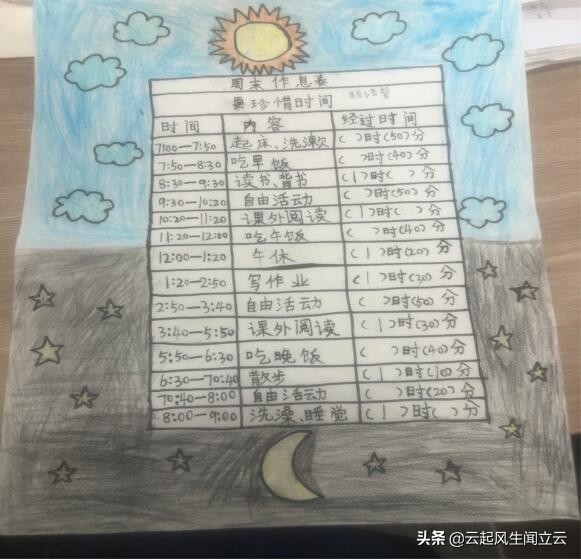 周末作息表
要珍惜时间
时间 内容 经过时间
7:00—7:50 起床、洗漱 ( )时(50)分
7:50—8:30 吃早饭 ( )时(40)分
8:30—9:30 读书、背书 (1)时( )分
9:30—10:20 自由活动 ( )时(50)分
10:20—11:20 课外阅读 (1)时( )分
11:20—12:00 吃午饭 ( )时(40)分
12:00—1:20 午休 (1)时(20)分
1:20—2:50 写作业 (1)时(30)分
2:50—3:40 自由活动 ( )时(50)分
3:40—5:50 课外阅读 (1)时(30)分
5:50—6:30 吃晚饭 ( )时(40)分
6:30—70:40 散步 (1)时(10)分
70:40—8:00 自由活动 ( )时(20)分
8:00—9:00 洗澡、睡觉 (1)时( )分
头条 @云起风生闻立云